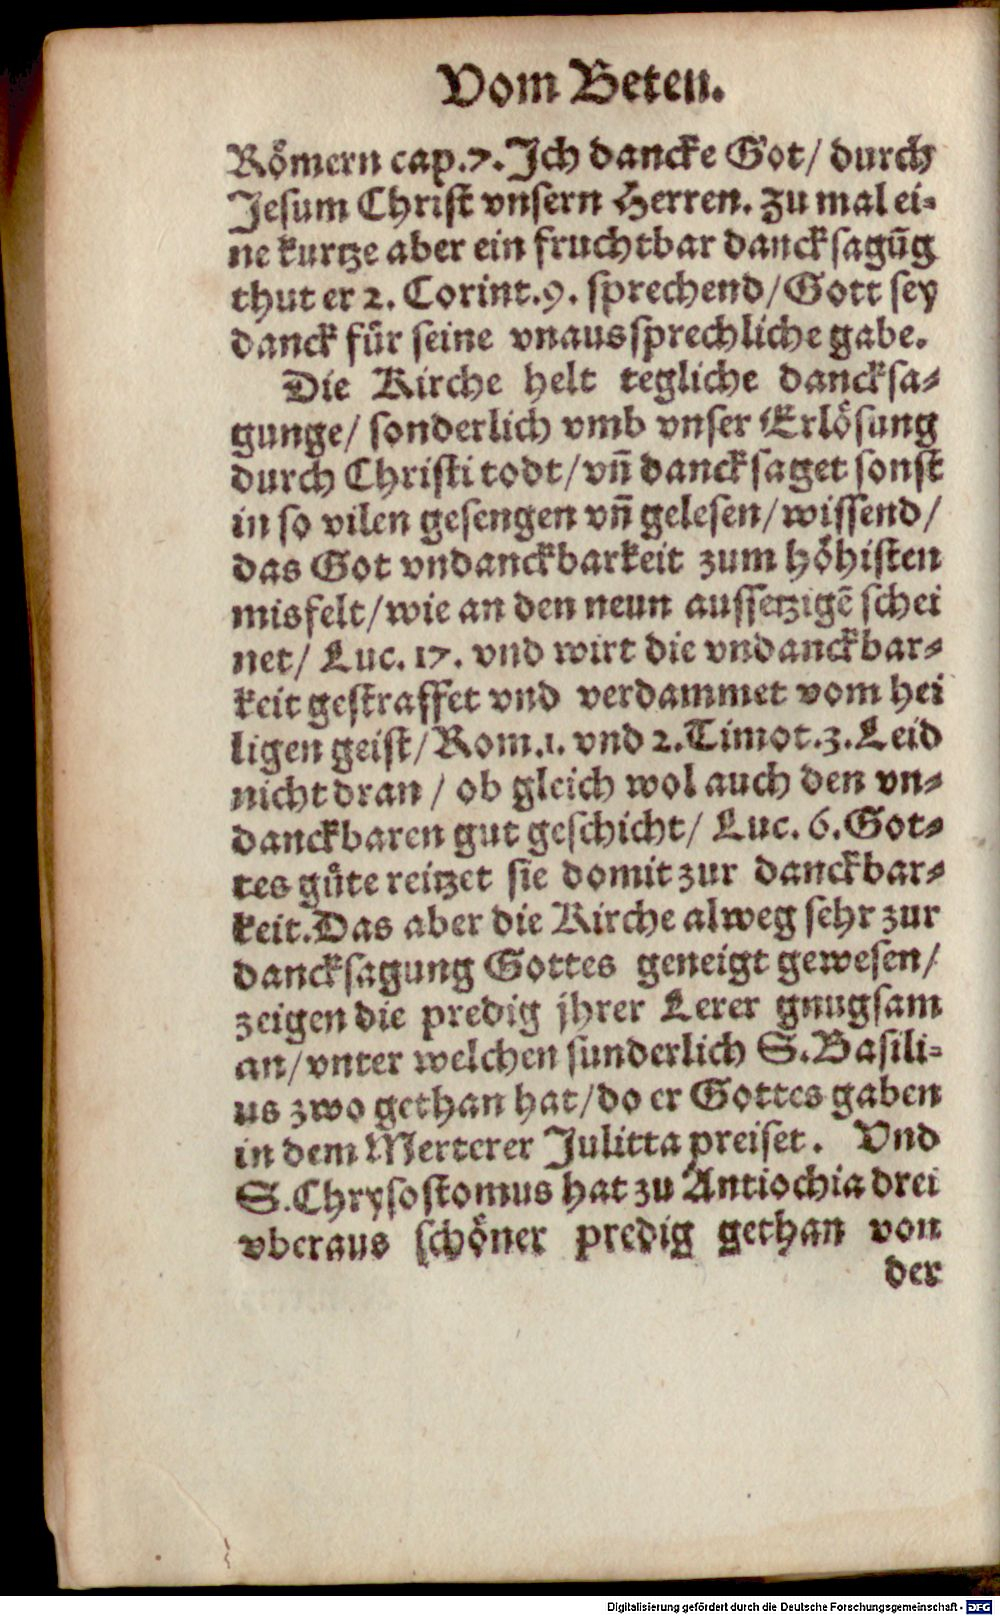 Vom Beten.
Römern cap.7. Jch dancke Got/ durch
Jesum Christ vnsern Herren. Zu mal ei-
ne kurtze aber ein fruchtbar dancksagūg
thut er 2. Corint.9. sprechend/ Gott sey
danck für seine vnaussprechliche gabe.
Die Kirche helt tegliche dancksa-
gunge/ sonderlich vmb vnser Erlösung
durch Christi todt/ vn̄ dancksaget sonst
in so vilen gesengen vn̄ gelesen/ wissend/
das Got vndanckbarkeit zum höhisten
misfelt/ wie an den neun aussetzigē schei
net/ Luc. 17. vnd wirt die vndanckbar-
keit gestraffet vnd verdammet vom hei
ligen geist/ Rom.1. vnd 2.Timot.3. Leid
nicht dran / ob gleich wol auch den vn-
danckbaren gut geschicht/ Luc. 6. Got-
tes güte reitzet sie domit zur danckbar-
keit. Das aber die Kirche alweg sehr zur
dancksagung Gottes geneigt gewesen/
zeigen die predig jhrer Lerer gnugsam
an/ vnter welchen sunderlich S. Basili-
us zwo gethan hat/ do er Gottes gaben
in dem Merterer Julitta preiset. Vnd
S. Chrysostomus hat zu Antiochia drei
vberaus schöner predig gethan von
der
Digitalisierung gefördert durch die Deutsche Forschungsgemeinschaft - DFG